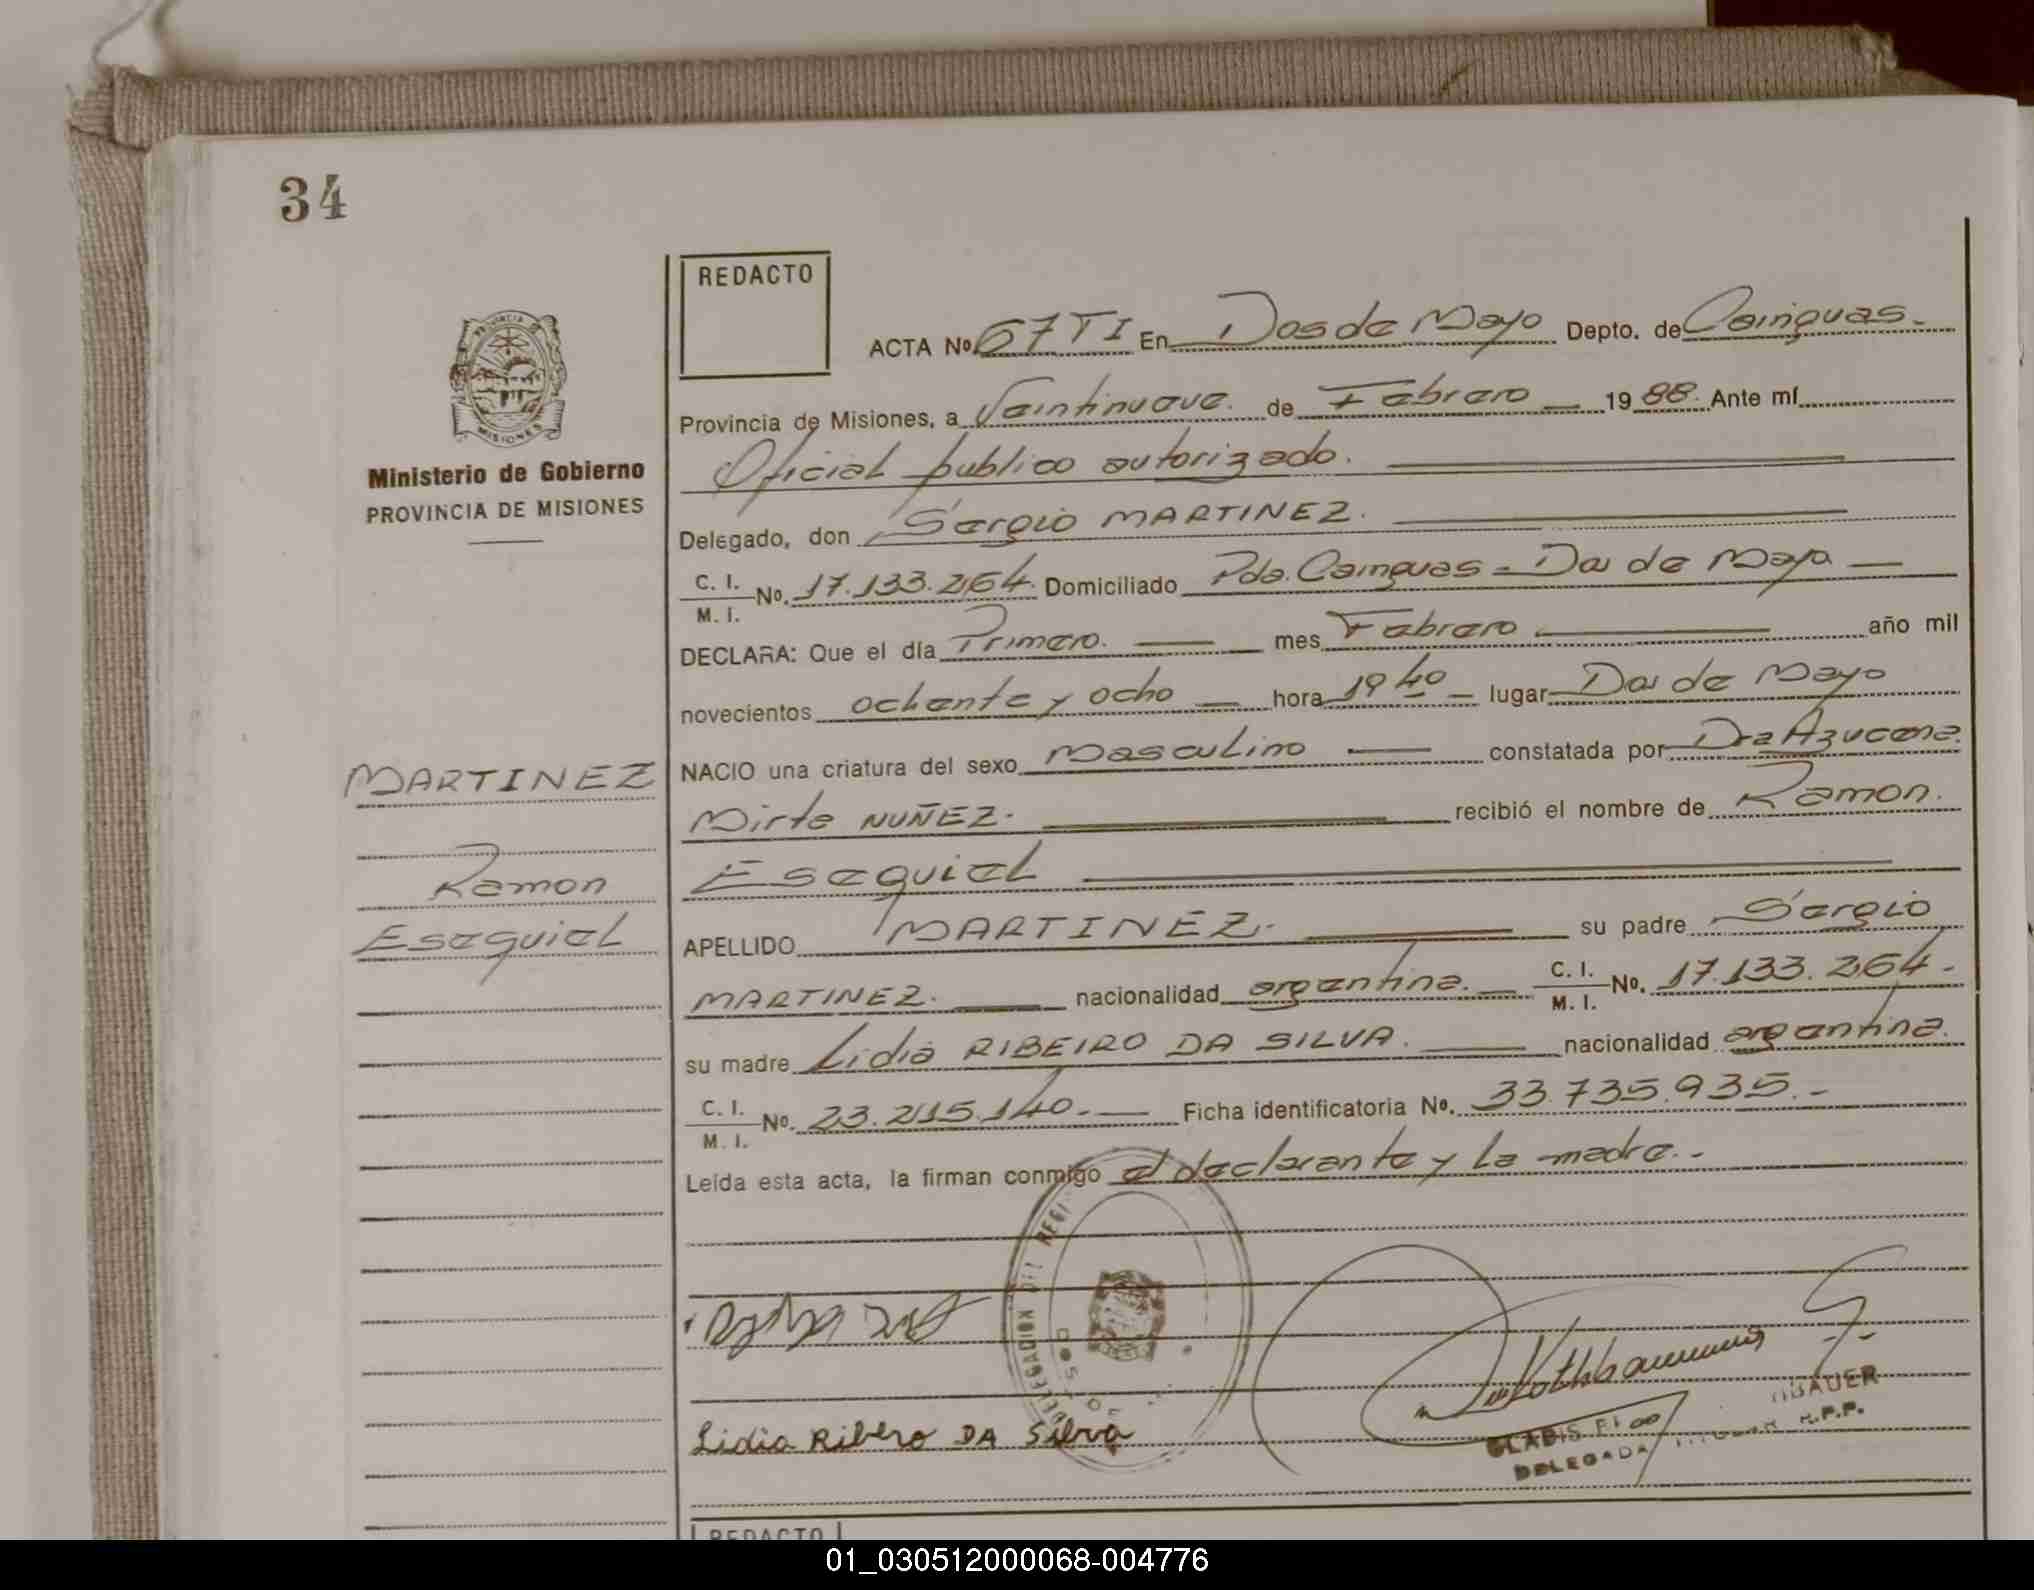 34
REDACTO
ACTA Nº 67 TI En Dos de Mayo Depto. de Cainguas.-
Provincia de Misiones, a Veintinueve. de Febrero 1988. Ante mí
Oficial publico autorizado.
Delegado, don Sergio MARTINEZ.
C. I. M. I. No. 17.133.264. Domiciliado Pda. Cainguas - Dos de Mayo
DECLARA: Que el día Primero. mes Febrero año mil
novecientos ochenta y ocho hora 19 40 lugar Dos de Mayo
NACIO una criatura del sexo Masculino constatada por Dra Azucena
Mirta NUÑEZ. recibió el nombre de Ramon.
Esequiel
APELLIDO MARTINEZ. su padre Sergio
MARTINEZ. nacionalidad argentina. C. I. M. I. No. 17.133.264.-
su madre Lidia RIBEIRO DA SILVA. nacionalidad argentina.
C. I. M. I. No. 23.215.140.- Ficha identificatoria Nº. 33.735.935.-
Leída esta acta, la firman conmigo el declarante y la madre.-
PROVINCIA DE
MISIONES
Ministerio de Gobierno
PROVINCIA DE MISIONES
MARTINEZ
Ramon
Esequiel
DELEGACION DEL REGI
DOS
Lidia Ribero DA Silva
GLADIS
BAUER
DELEGADA TITULAR R.P.P.
REDACTO
01_030512000068-004776